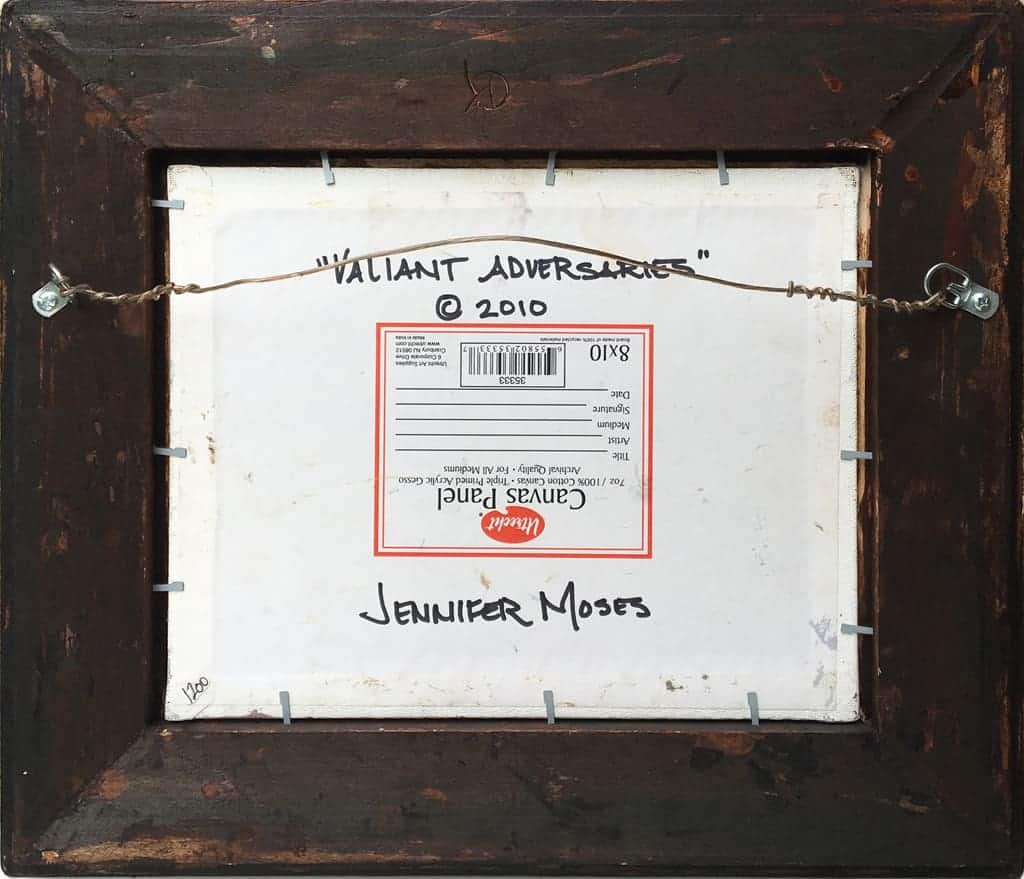 "VALIANT ADVERSARIES"
© 2010
Utrecht
Canvas Panel
7oz / 100% Cotton Canvas • Triple Primed Acrylic Gesso
Archival Quality • For All Mediums
Title
Artist
Medium
Signature
Date
8x10
Board made of 100% recycled materials
35333
Utrecht Art Supplies
6 Corporate Drive
Cranbury NJ 08512
www.utrecht.com
Made in India
JENNIFER MOSES
1200